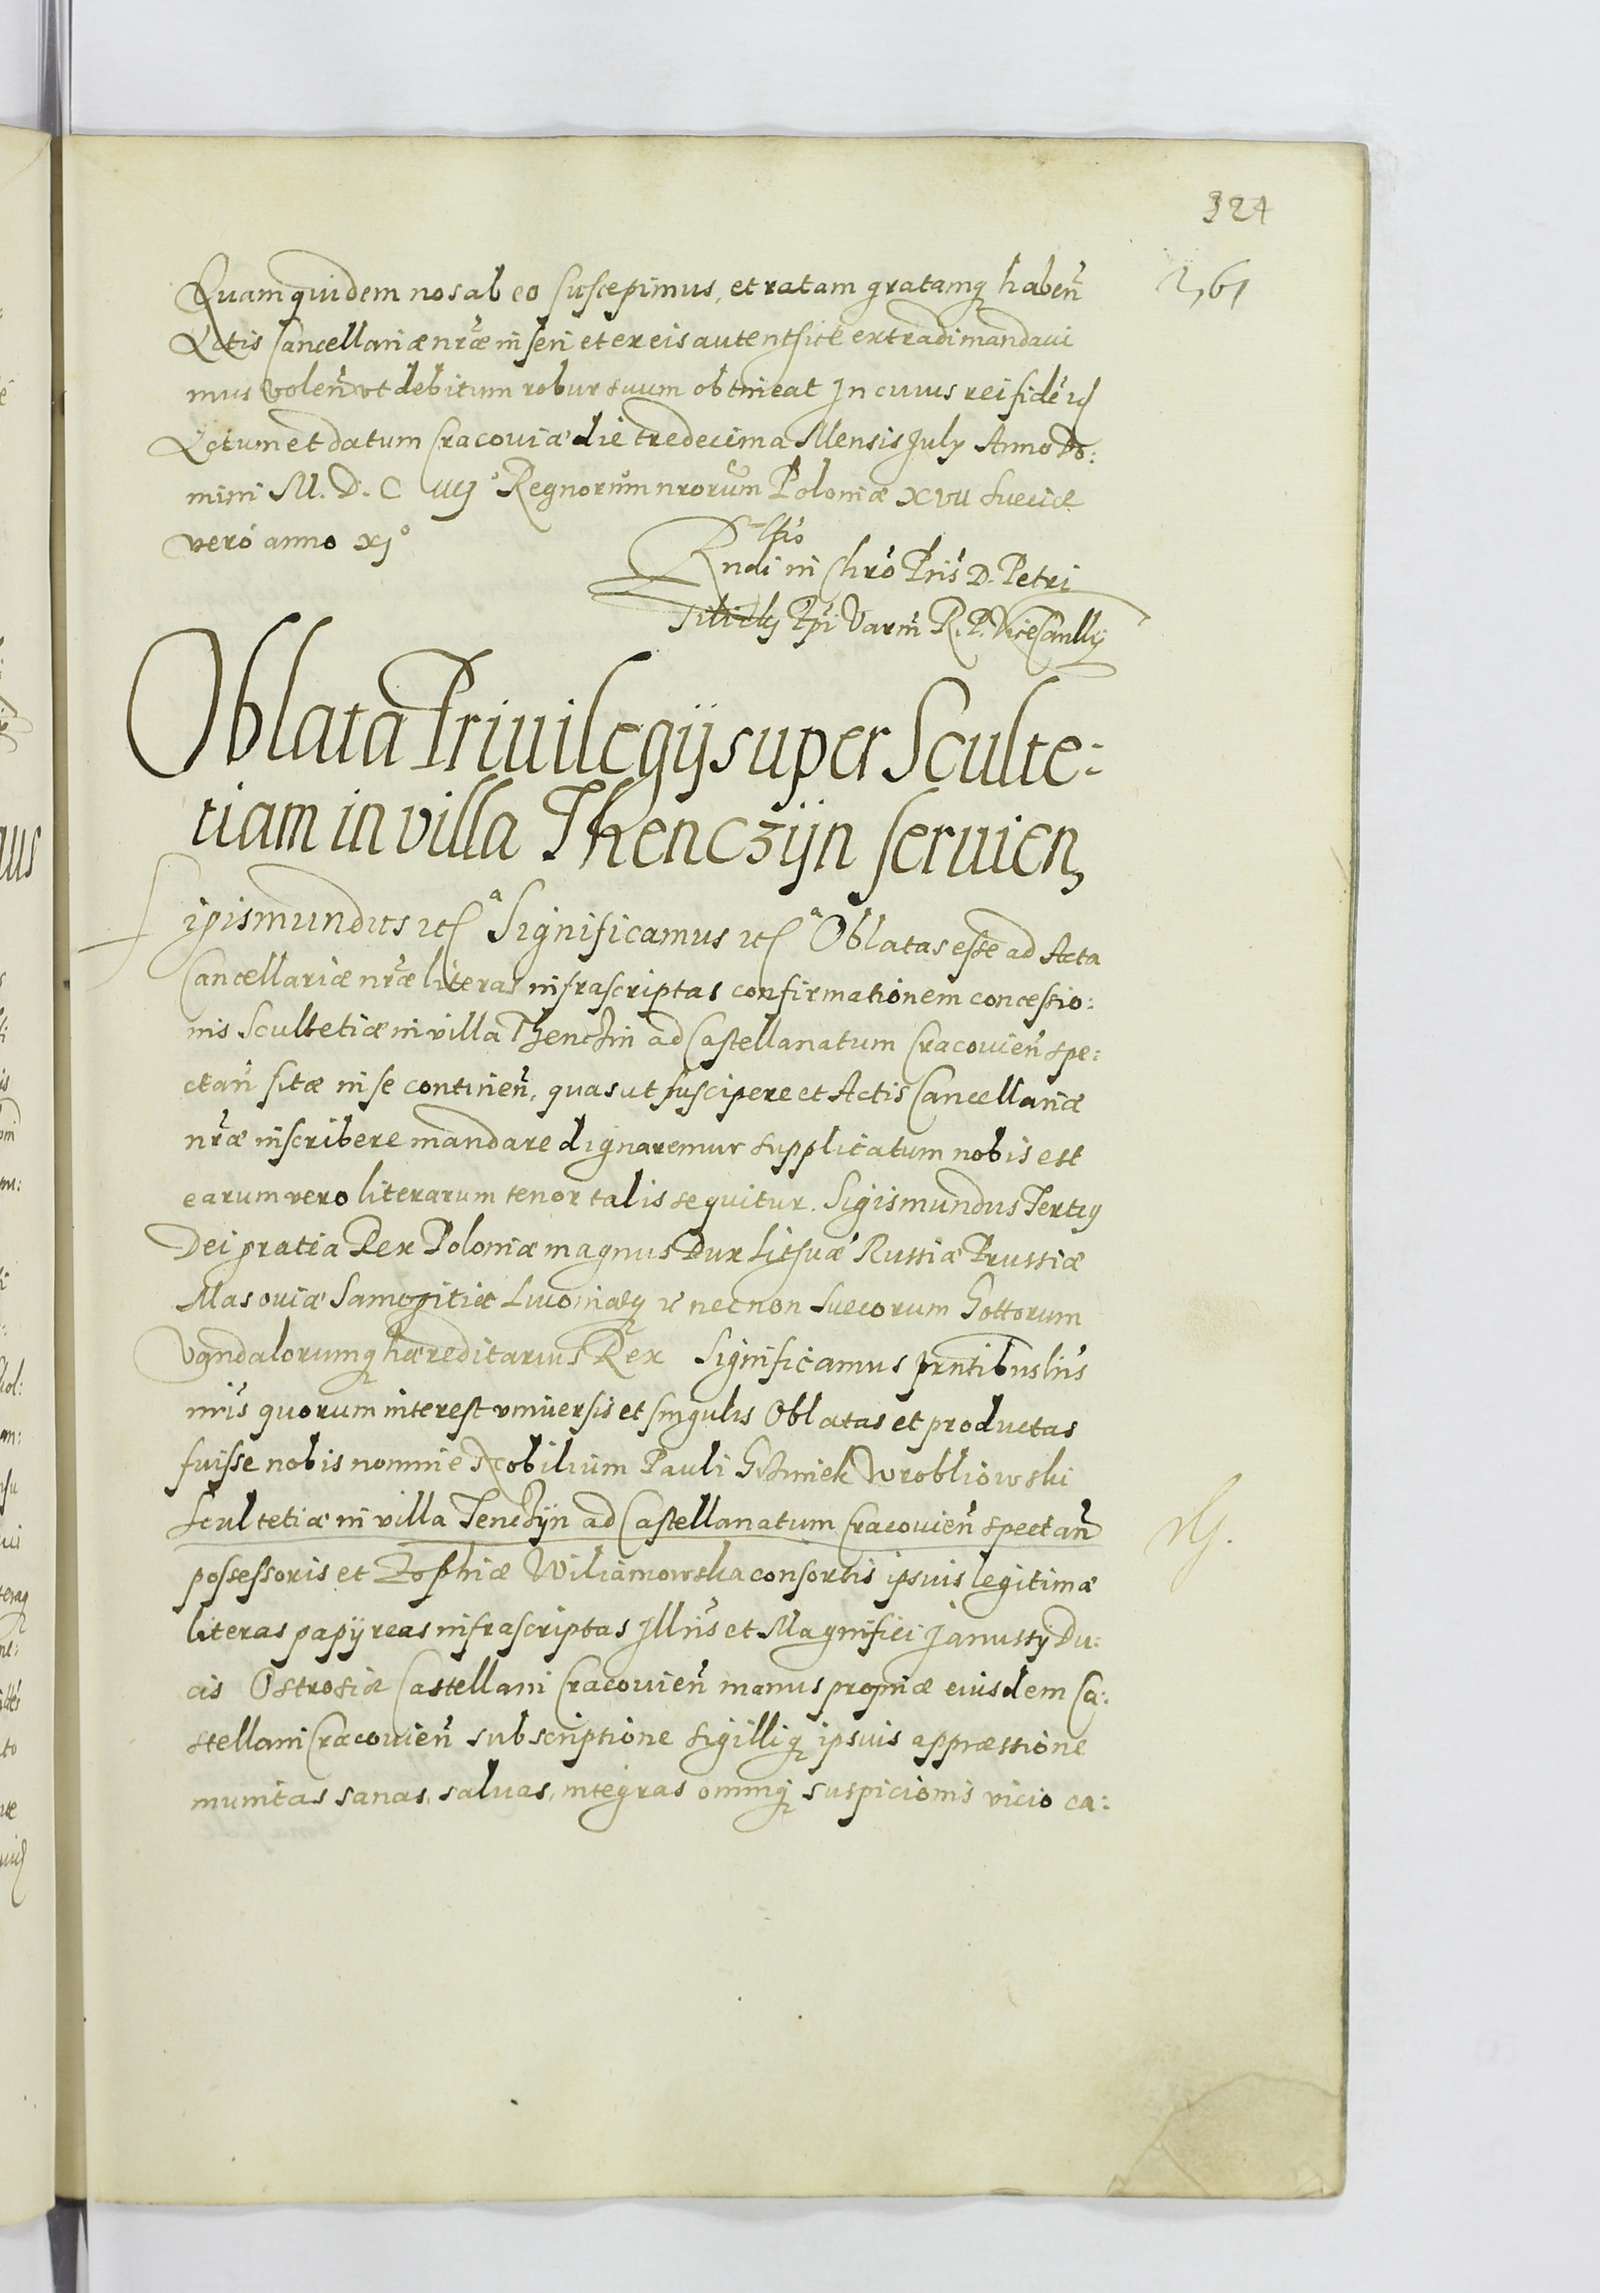 324
261
Quam quidem nos ab eo suscepimus, et ratam gratamq habeñ
Actis Cancellariæ nr̃æ inseri et ex eis autenthice extradi mandaui
mus voleñ ut debitum robur suum obtineat In cuius rei fidẽ
Actum et datum Cracouiæ die tredecima Mensis July Anno Do:
mini M. D. C iiij° Regnorum nrorum Poloniæ xvii Sueciæ
vero anno xj°
Rltio
Rndi in Chro Pris D. Petri
Tilicky Epi Varm̃ R. P. ViceCanllÿ
Oblata Priuilegij super Sculte:
tiam in villa Thenczijn seruien,
Sigismundus etc a Significamus etc a Oblatas esse ad Acta
Cancellariæ nr̃æ literas infrascriptas confirmationem concessio:
nis Scultetiæ in villa Thenchin ad Castellanatum Cracouieñ spe:
ctañ sitæ in se contineñ, quas ut suscipere et Actis Cancellariæ
nr̃æ inscribere mandare dignaremur supplicatum nobis est
earum vero literarum tenor talis sequitur. Sigismundus Tertiq
Dei gratia Rex Poloniæ magnus Dux Lithuæ Russiæ Prussiæ
Masouiæ Samogitiæ Liuoniæq etc necnon Suecorum Gottorum
Vandalorumq hæreditarius Rex Significamus prntibus lris
nris quorum interest vniuersis et singulis Oblatas et productas
fuisse nobis nomine Nobilium Pauli Wrobliowski
Scultetiæ in villa Tenchijn ad Castellanatum Cracouieñ spectañ
possessoris et Zophiæ Wiliamowska consortis ipsuis legitimæ
literas papÿreas infrascriptas Illris et Magnifici Janussÿ Du:
cis Ostrosiæ Castellani Cracouieñ manus propriæ eiusdem Ca:
stellani Cracouieñ subscriptione sigilliq ipsuis appræssione
munitas sanas, saluas, integras omniq suspicionis vicio ca: